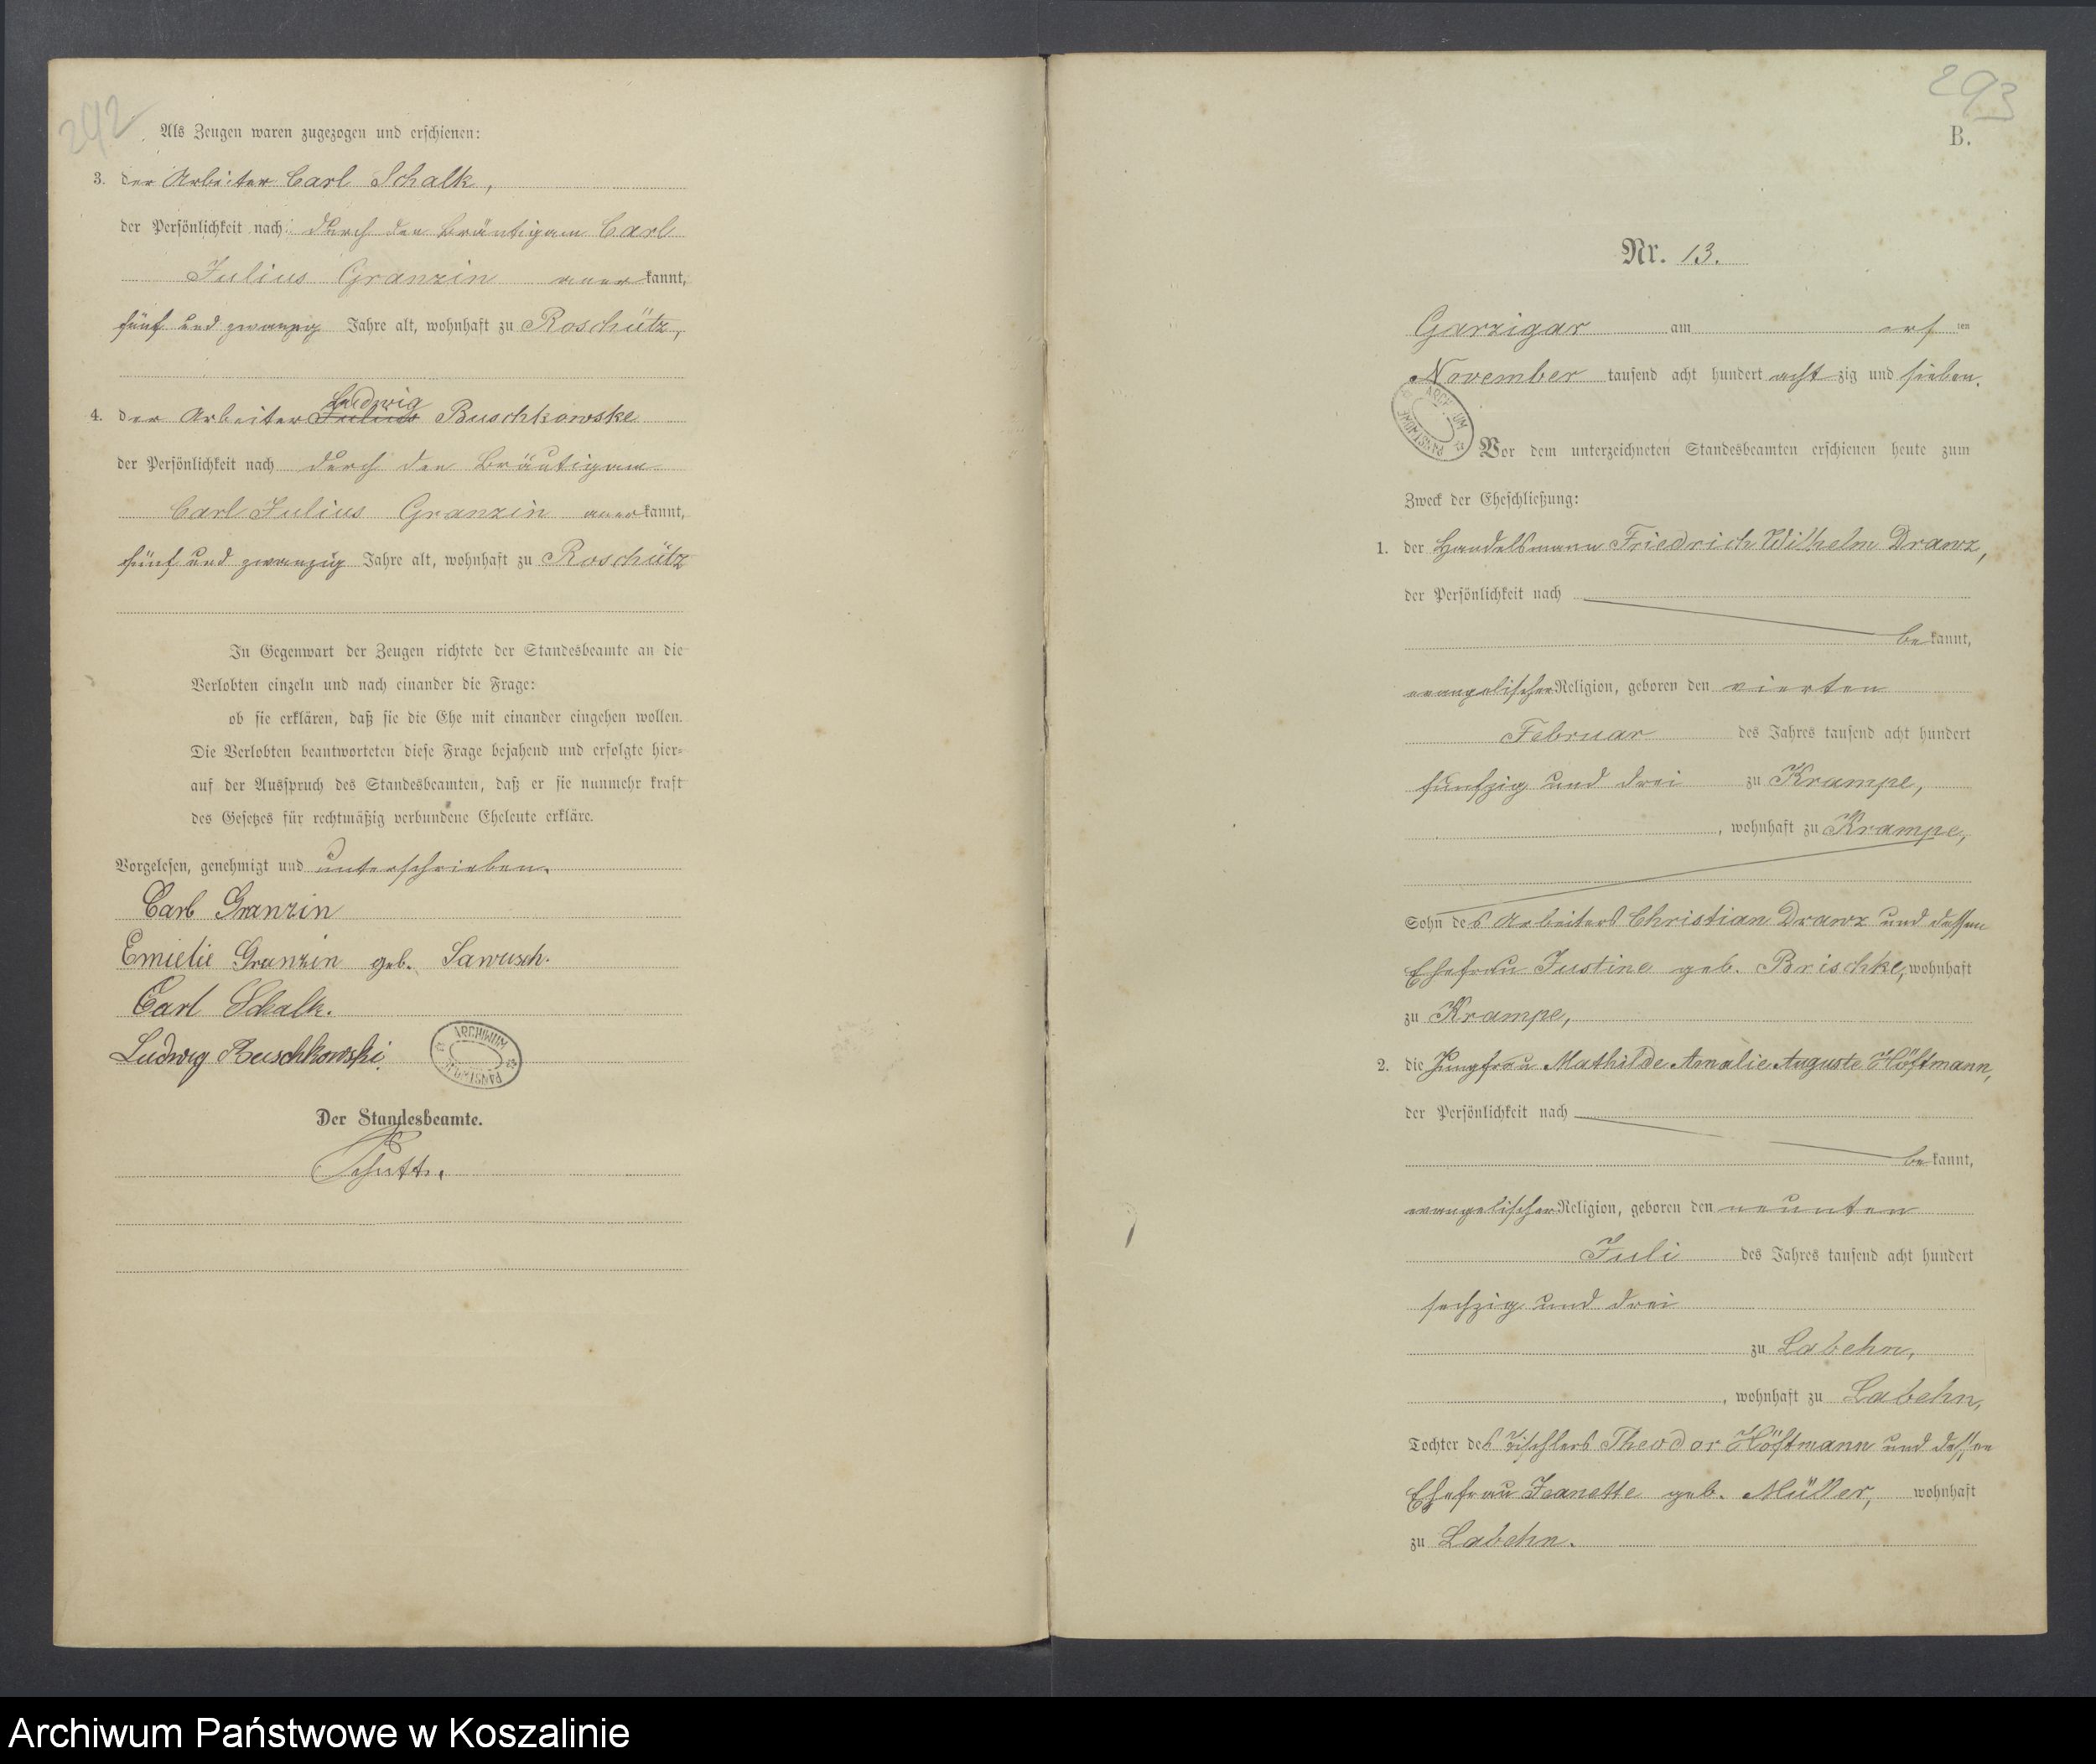 292
Als Zeugen waren zugezogen und erschienen:
3. der Arbeiter Carl Schalk,
der Persönlichkeit nach durch den Bräutigam Carl
Julius Granzin anerkannt,
fünf und zwanzig Jahre alt, wohnhaft zu Roschütz,
Ludwig
4. der Arbeiter Julius Buschkowske
der Persönlichkeit nach durch den Bräutigam
Carl Julius Granzin anerkannt,
fünf und zwanzig Jahre alt, wohnhaft zu Roschütz
In Gegenwart der Zeugen richtete der Standesbeamte an die
Verlobten einzeln und nach einander die Frage:
ob sie erklären, daß sie die Ehe mit einander eingehen wollen.
Die Verlobten beantworteten diese Frage bejahend und erfolgte hier-
auf der Ausspruch des Standesbeamten, daß er sie nunmehr kraft
des Gesetzes für rechtmäßig verbundene Eheleute erkläre.
Vorgelesen, genehmigt und unterschrieben.
Carl Granzin
Emielie Granzin geb. Sawusch.
Carl Schalk.
Ludwig Buschkowski.
ARCHIWUM
PAŃSTWOWE
Der Standesbeamte.
293
B.
Nr. 13.
Garzigar am ten
November tausend acht hundert achtzig und sieben.
ARCHIWUM
PAŃSTWOWE
Vor dem unterzeichneten Standesbeamten erschienen heute zum
Zweck der Eheschließung:
1. der Handelsmann Friedrich Wilhelm Drawz,
der Persönlichkeit nach
bekannt,
evangelischer Religion, geboren den vierten
Februar des Jahres tausend acht hundert
fünfzig und drei zu Krampe,
, wohnhaft zu Krampe,
Sohn des Arbeiters Christian Drawz und dessen
Ehefrau Justine geb. Brischke, wohnhaft
zu Krampe,
2. die Jungfrau Mathilde Amalie Auguste Höftmann,
der Persönlichkeit nach
bekannt,
evangelischer Religion, geboren den neunten
Juli des Jahres tausend acht hundert
sechzig und drei
zu Labehn,
, wohnhaft zu Labehn,
Tochter des Tischlers Theodor Höftmann und dessen
Ehefrau Jeanette geb. Müller, wohnhaft
zu Labehn.
Archiwum Państwowe w Koszalinie